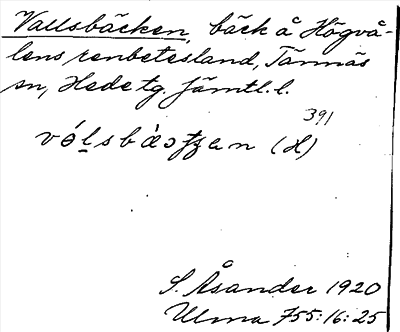 Vallsbäcken, bäck å Högvå-
lens renbetesland, Tännäs
sn, Hede tg. Jämtl. l.
391
(H)
S. Åsander 1920
Ulma 755:16:25